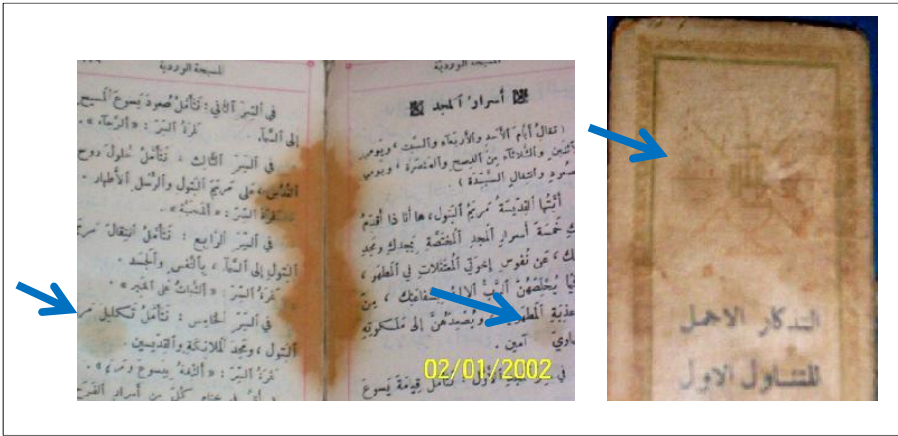 المسبحة الوردية
أسرار المجد
( تقال أيام الأحد والأربعاء والسبت ، ويومي
والثلاثاء من الفصح والعنصرة ، ويومي
وانتقال السيدة )
أيتها القديسة مريم البتول، ها أنا ذا أقدم
خمسة أسرار المجد المختصة بمجدك ومجد
عن نفوس إخوتي المعتقلات في المطهر ،
يخلصهن الرب الإله بشفاعتك ، من
ويصعدهن إلى ملكوته
آمين .
02/01/2002
الأول : نتأمل قيامة يسوع
المسبحة الوردية
في السر الثاني : نتأمل صعود يسوع المسيح
إلى السماء . ثمرة السر : « الرجاء » .
في السر الثالث : نتأمل حلول روح
القدس ، على مريم البتول والرسل الأطهار .
ثمرة السر : « المحبة » .
في السر الرابع : نتأمل انتقال مريم
البتول إلى السماء ، بالنفس والجسد .
ثمرة السر : « الثبات على الخير » .
في السر الخامس : نتأمل تكليل
البتول ، ومجد الملائكة والقديسين .
ثمرة السر : « الثقة بيسوع ومريم » .
كل من أسرار الفرح
التذكار الاجمل
للتناول الاول